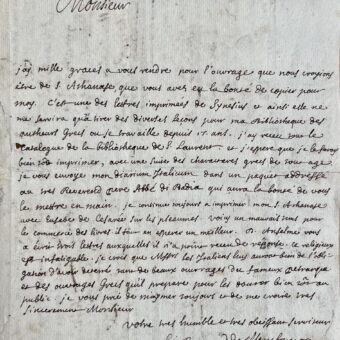 Monsieur
j'ay mille graces a vous rendre pour l'ouvrage que nous croyions
être de S Athanase que vous avez eu la bonté de copier pour
moy. C'est une des lettres imprimees de Synesius et ainsi elle ne
me servira qu'à tirer des diverses leçons pour ma Bibliotheque des
autheurs Grecs ou je travaille depuis ans. j'ay receu tout le
Catalogue de la bibliotheque de S Laurent et j'espere que je le feray
bien tôt imprimer, avec une suite des characteres grecs de tout age
je vous envoye mon diarium Italicum dans un paquet addressé
au tres Reverend pere Abbé di Badia qui aura la bonté de vous
le mettre en main. je continue toujours a imprimer mon S Athanase
avec Eusebe de Cesarée sur les pseaumes. voicy un mauvais tems pour
le commerce des livres il faut en esperer un meilleur. D. Anselme vous
a écrit trois lettres auxquelles il n'a point receu de réponse. ce religieux
est infatigable. je crois que Messrs les Italiens leur auront bien de l'obli-
gation d'avoir deterré tant de beaux ouvrages du fameux petrarque
et des ouvrages Grecs qu'il prepare pour les donner bien tôt au
public. je vous prie de m'aimer toujours et de me croire tres
sincerement Monsieur
votre tres humble et tres obeissant serviteur